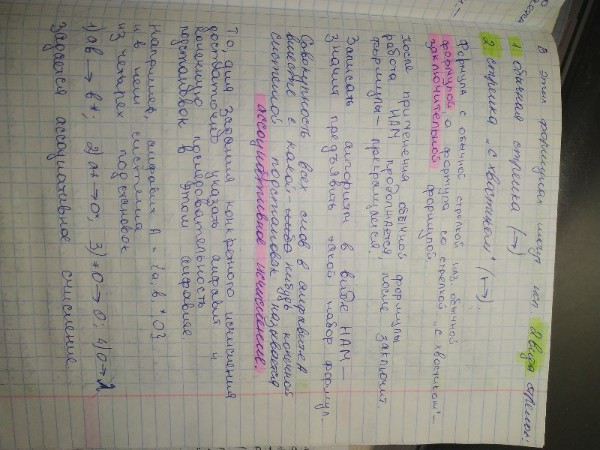 В этих формулах могут исп. 2 вида стрелок:
1. обычная стрелка (→)
2. стрелка „с хвостиком" (↦).
Формула с обычной стрелкой наз. обычной
формулой, а формула со стрелкой „с хвостиком" –
заключительной формулой.
После применения обычной формулы
работа НАМ продолжается, после заключит.
формулы – прекращается.
Записать алгоритм в виде НАМ –
значит предъявить такой набор формул.
Совокупность всех слов в алфавите A
вместе с какой-нибудь конечной
системой подстановок называется
ассоциативное исчисление.
То, для задания конкретного исчисления
достаточно указать алфавит и
конечную последовательность
подстановок в этом алфавите.
Например, алфавит A = {a, b, *, 0}
и в нем система
из четырех подстановок
1) ab → b*; 2) a* → 0*; 3) *0 → 0; 4) 0 → λ
задается ассоциативное счисление